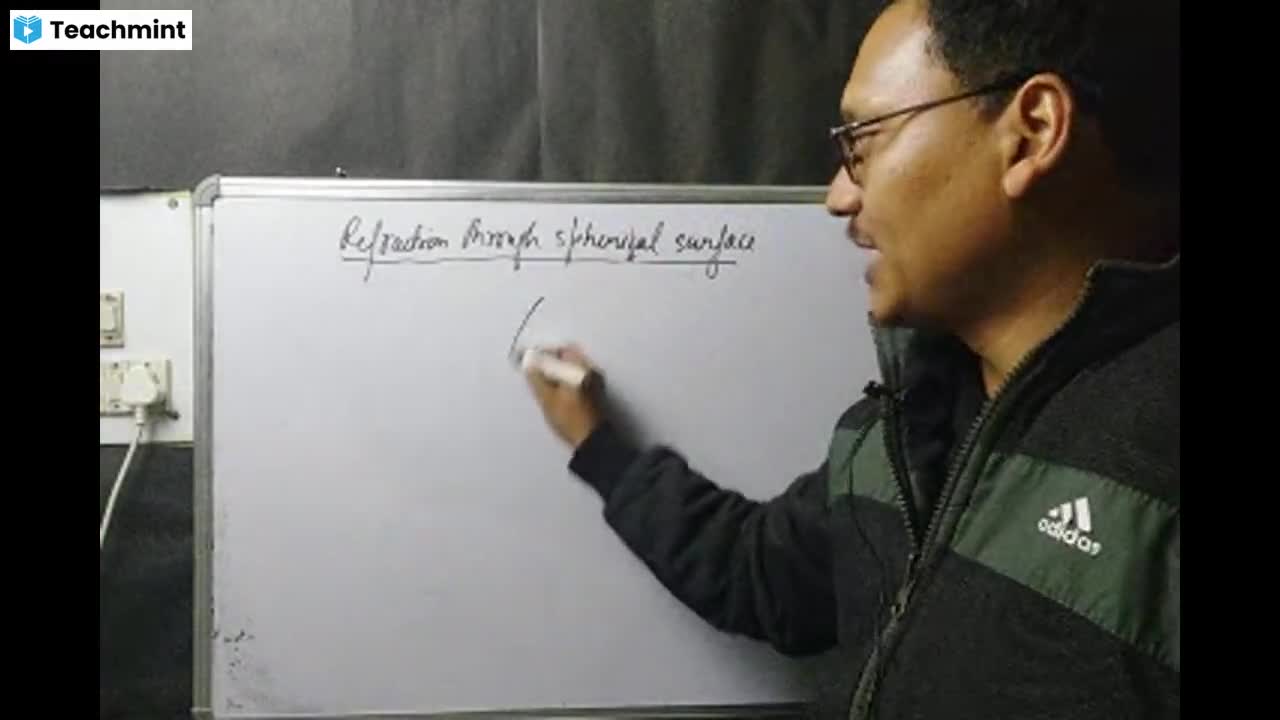 Teachmint
Refraction through spherical surface
adidas